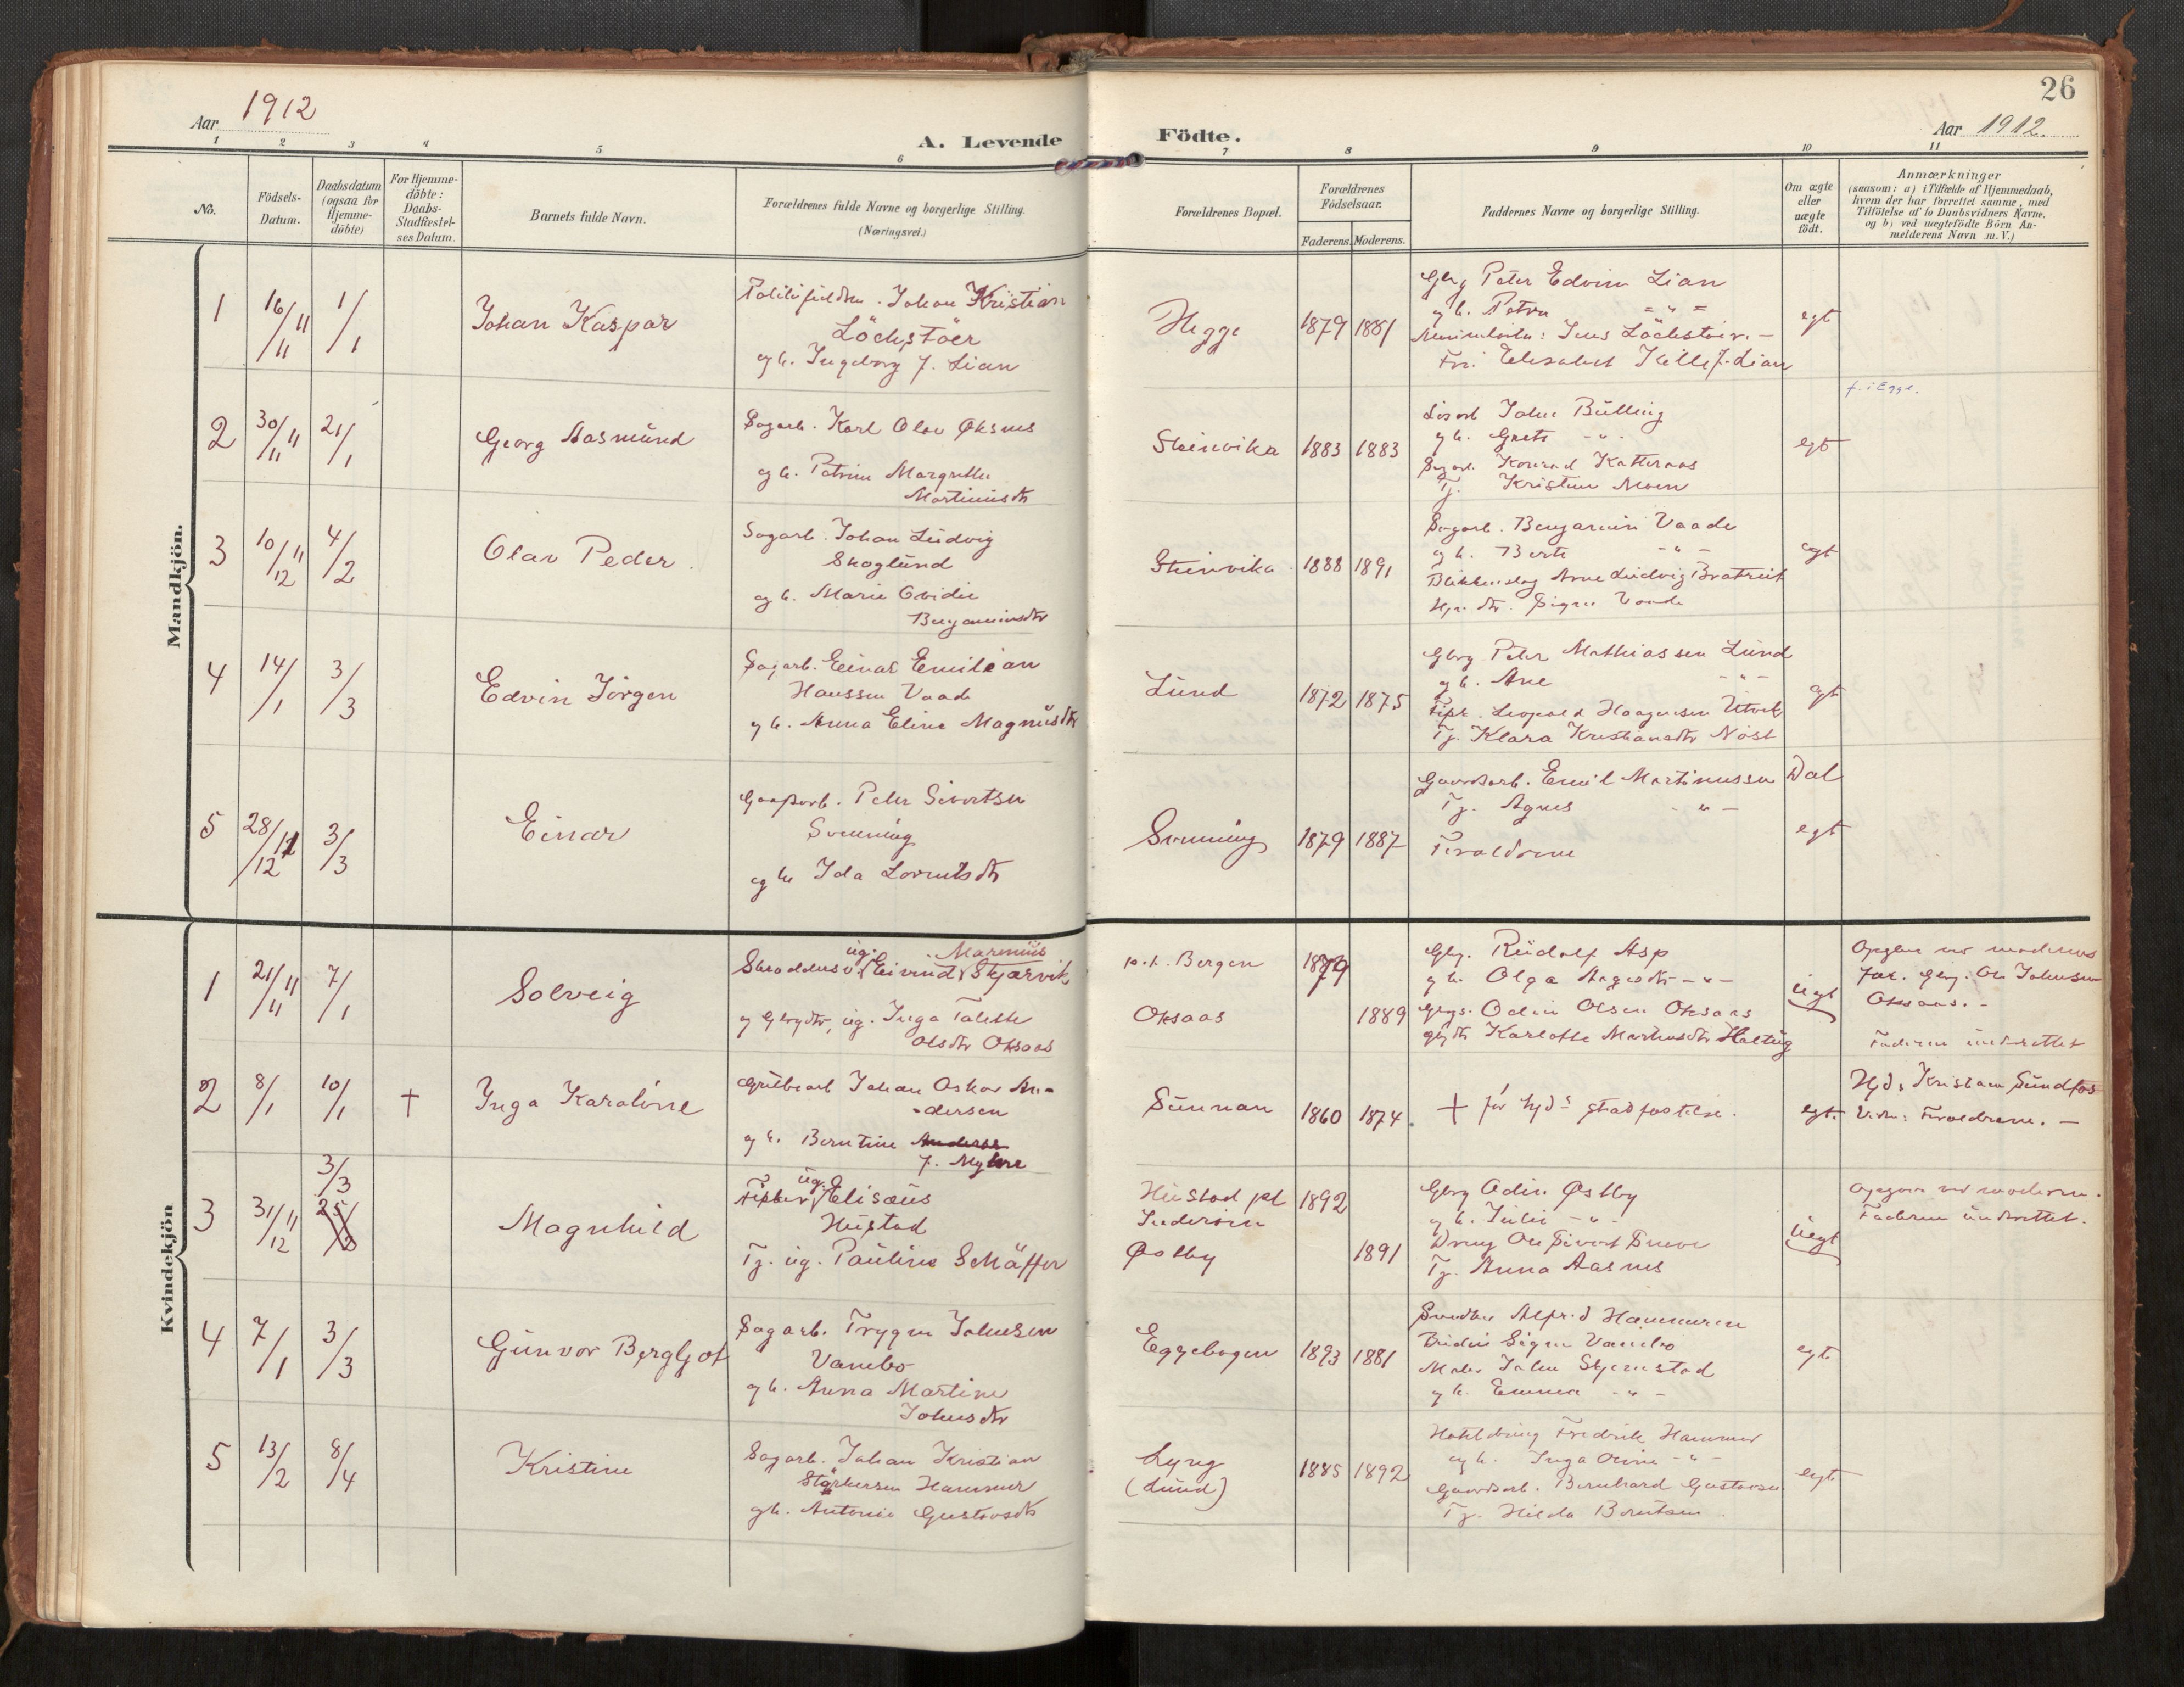 Aar 1912
A. Levende
Födte.
Aar 1912.
26
1 2 3 4 5 6 7 8 9 10 11
No.
Födsels-
Datum.
Daabsdatum
(ogsaa for
Hjemme-
döbte)
For Hjemme-
döbte:
Daabs-
Stadfæstel-
ses Datum.
Barnets fulde Navn.
Forældrenes fulde Navne og borgerlige Stilling.
(Næringsvei.)
Forældrenes Bopæl.
Forældrenes
Födselsaar.
Faderens. Moderens.
Faddernes Navne og borgerlige Stilling.
Om ægte
eller
uægte
födt.
Anmærkninger
(saasom: a) i Tilfælde af Hjemmedaab,
hvem der har forrettet samme, med
Tilföielse af to Daabsvidners Navne.
og b) ved uægtefödte Börn An-
melderens Navn m.V.)
Mandkjön.
1 16/11 11 1/1 Johan Kaspar
Johan Kristian
Löchstöer
gh. Ingeborg f. Lian
Hegge 1879 1881
Gbrg Peter Edvin Lian
gh. Petra
Jens Löchstöer. -
Elisabet f. Lian
egt
f. i Egge.
2 30/11 11 21/1 Georg Aasmund
Sagarb. Karl Olav Øksnes
gh. Petrine Margrethe
Martinusdtr
Steinvika 1883 1883
John Bülling
gh. Grete - " -
Sagarb. Konrad Katteraas
Tj. Kristine Moen
egt
3 10/12 11 4/2 Olav Peder.
Sagarb. Johan Ludvig
Skoglund
og h. Marie Ovidie
Benjaminsdtr
Steinvika. 1888 1891
Sagarb. Benjamin Vaade
gh. Berte - " -
Arne Ludvig Bratreit
Signe Vaade
egt
4 14/1 3/3 Edvin Jörgen
Sagarb. Einar Emilian
Hanssen Vaade
gh. Anna Eline Magnusdtr
Lund 1872 1875
Gbrg Peter Mathiassen Lund
gh. Ane - " -
Leopold Haagensen Utvik
Tj. Klara Kristiansdtr Nöst
egt
5 28/12 11 3/3 Einar
Peter Sivertsen
Svenning
og h. Ida Lorntsdtr
Svenning 1879 1887
Gaardsarb. Emil Martinussen Dal
Tj. Agnes - " -
Forældrene
egt
Kvindekjön
1 21/11 11 7/1 Solveig
ug. Marenius
Eivind Skjærvik
og Gbrgdtr, ug. Inga Talette
Olsdtr Oksaas
p.t. Bergen 1879
Oksaas 1889
Gbrg. Rudolf Asp
gh. Olga - " -
Gbrgs. Odin Olsen Oksaas
Karlotte Markusdtr Haltug
Uegt
Opgave ved moderens
far. Gbrg. Ole Johnsen
Oksaas. -
Faderen underrettet
2 8/1 10/1 + Inga Karoline
Johan Oskar An-
dersen
gh. Berntine Anders
f. Myhre
Sunnan 1860 1874.
+ för hjds stadfæstelse.
egt.
Hjd. Kristian Sundfos
Vidn: Forældrene. -
3/3
3 31/12 11 25/2 Magnhild
Fisker ug. Elisæus
Hustad
Tj. ug. Pauline Schäffer
Hustad pt 1892
Inderöen
Østby 1891
Gbrg Odin Østby
gh. Julie - " -
Dreng Ole Sivert
Tj. Anna Aasnes
Uegt
Opgave ved moderen.
Faderen underrettet.
4 7/1 3/3 Gunvor Bergljot
Sagarb. Trygve Johnsen
Vanebo
gh. Anna Martine
Johnsdtr
Eggebogen 1893 1881
Alfred Hammeren
Signe Vanebo
Maler John Skjemstad
gh. Emma - " -
egt.
5 13/2 8/4 Kristine
Sagarb. Johan Kristian
Störkersen Hammer
gh. Antonie Gustavsdtr
Lyng
(Lund) 1885 1892
Fredrik Hammer
og h. Inga Oline - " -
Gaardsarb. Bernhard Gustavsen
Tj. Hilda Berntsen.
egt.